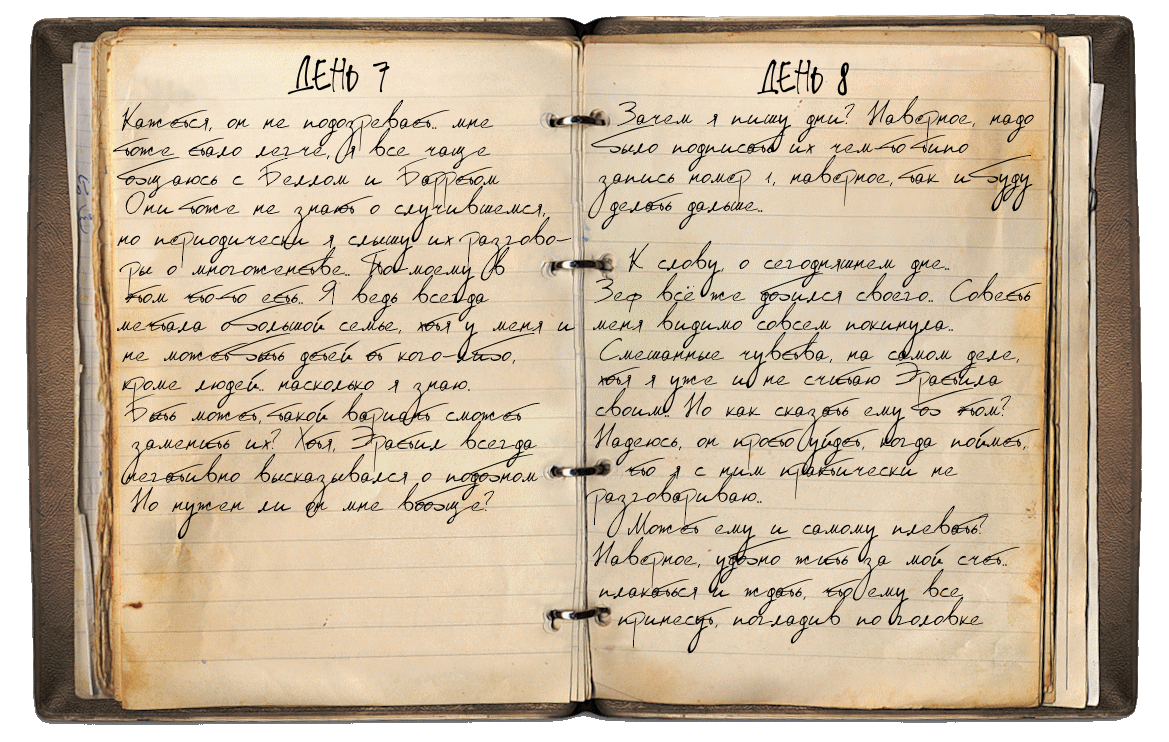 ДЕНЬ 7
Кажется, он не подозревает.. мне
тоже стало легче, я все чаще
общаюсь с Беллом и Барретом
Они тоже не знают о случившемся,
но периодически я слышу их разгово-
ры о многоженстве.. По-моему в
этом что-то есть.. Я ведь всегда
мечтала о большой семье, хотя у меня и
не может быть детей от кого-либо,
кроме людей. насколько я знаю.
Быть может, такой вариант сможет
заменить их? Хотя, Эрастил всегда
негативно высказывался о подобном
Но нужен ли он мне вообще?
ДЕНЬ 8
Зачем я пишу дни? Наверное, надо
было подписать их чем-то типо
запись номер 1, наверное, так и буду
делать дальше..
К слову, о сегодняшнем дне..
Зеф всё же добился своего.. Совесть
меня видимо совсем покинула..
Смешанные чувства, на самом деле,
хотя я уже и не считаю Эрастила
своим. Но как сказать ему об этом?
Надеюсь, он просто уйдет, когда поймет,
что я с ним практически не
разговариваю..
Может ему и самому плевать?
Наверное, удобно жить за мой счет..
плакаться и ждать, что ему все
принесут, погладив по головке